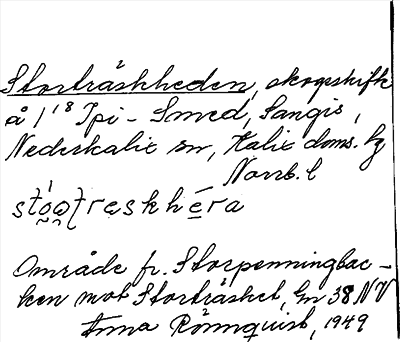 Storträskheden, skogsskifte
å 1/18 Ipi - Smed, Sangis,
Nederkalix sn, Kalix doms. lg
Norrb. l
Område fr. Storpenningbac-
ken mot Storträsket, Gn 38 NV
Anna Rönnquist, 1949